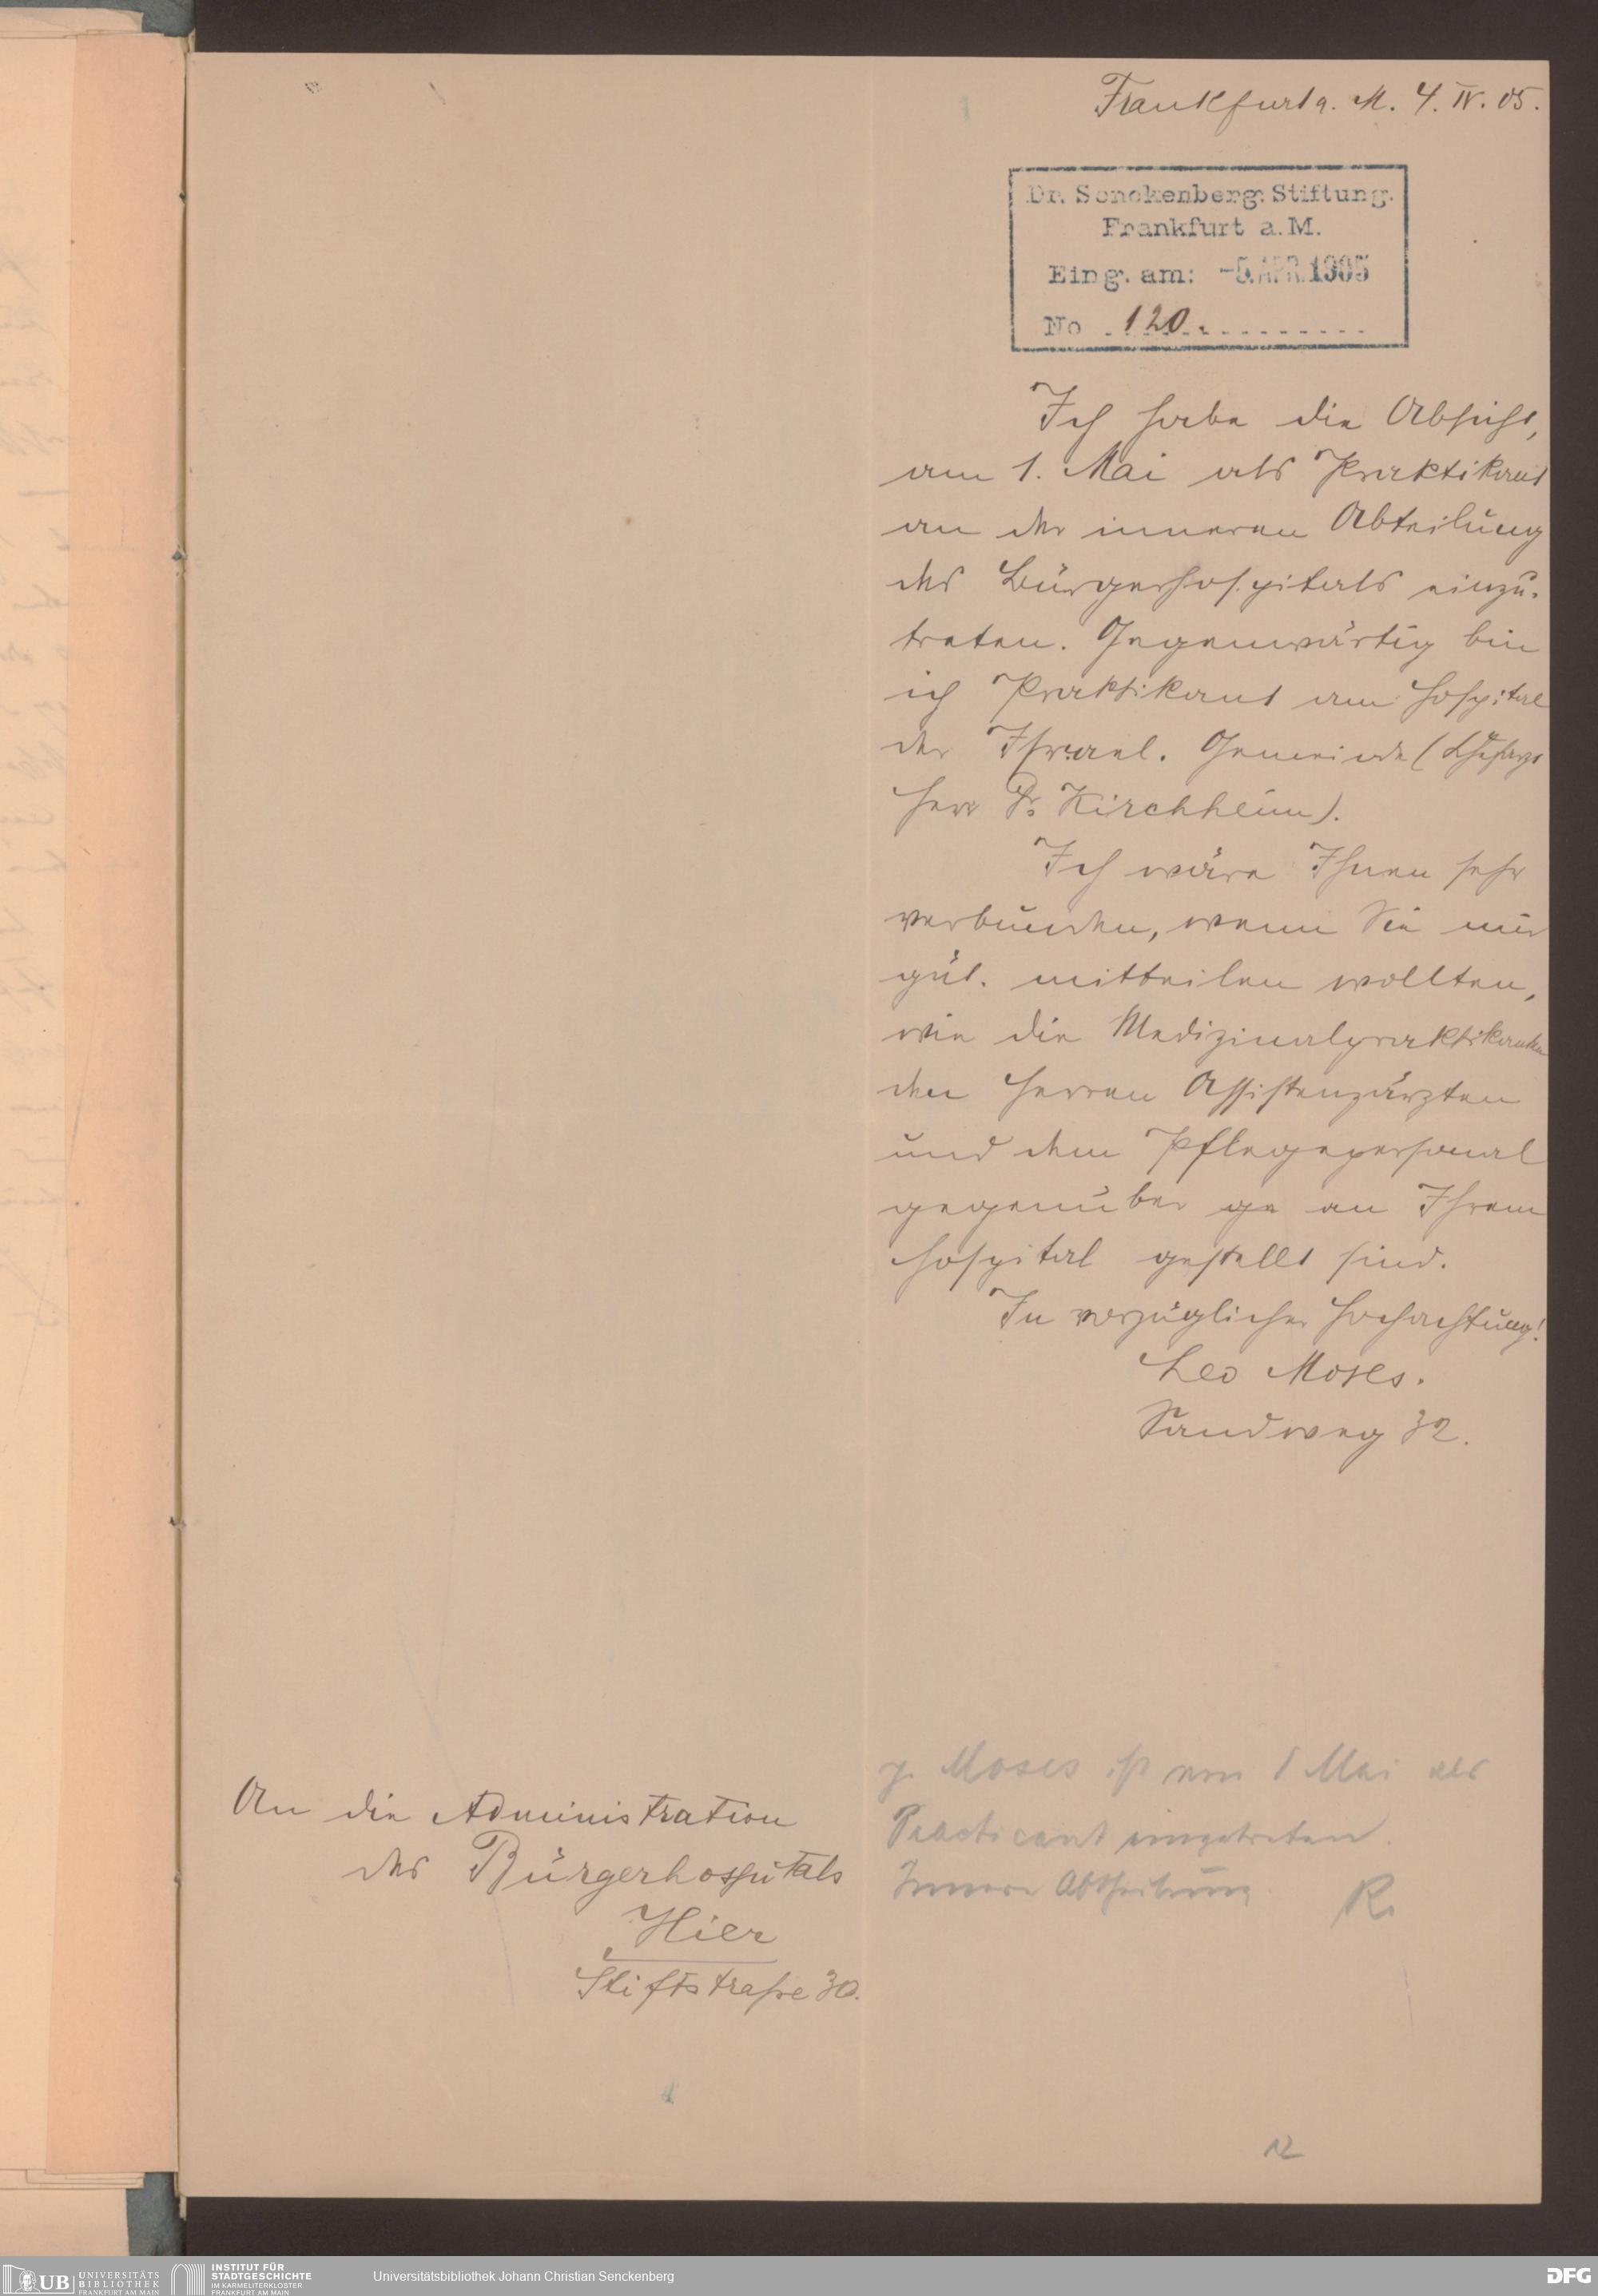 Frankfurt a. M. 4. IV. 05.
Dr. Senckenberg. Stiftung.
Frankfurt a. M.
Eing. am: -5. APR. 1905
No 120.
Ich habe die Absicht,
am 1. Mai als Praktikant
an der inneren Abteilung
des Bürgerhospitals einzu-
treten. Gegenwärtig bin
ich Praktikant am Hospital
der Israel. Gemeinde (Chefarzt
Herr Dr Kirchheim).
Ich wäre Ihnen sehr
verbunden, wenn Sie mir
güt. mitteilen wollten,
wie die Medizinalpraktikanten
den Herren Assistenzärzten
und dem Pflegepersonal
gegenüber ge an Ihrem
Hospital gestellt sind.
In vorzüglicher Hochachtung!
Leo Moses.
Sandweg 32.
An die Administration
des Bürgerhospitals
Hier
Stiftstraße 30.
Moses ist am 1 Mai als
Practicant eingetreten.
Innere Abtheilung
R.
12
UB UNIVERSITÄTS
BIBLIOTHEK
FRANKFURT AM MAIN
INSTITUT FÜR
STADTGESCHICHTE
IM KARMELITERKLOSTER
FRANKFURT AM MAIN
Universitätsbibliothek Johann Christian Senckenberg
DFG